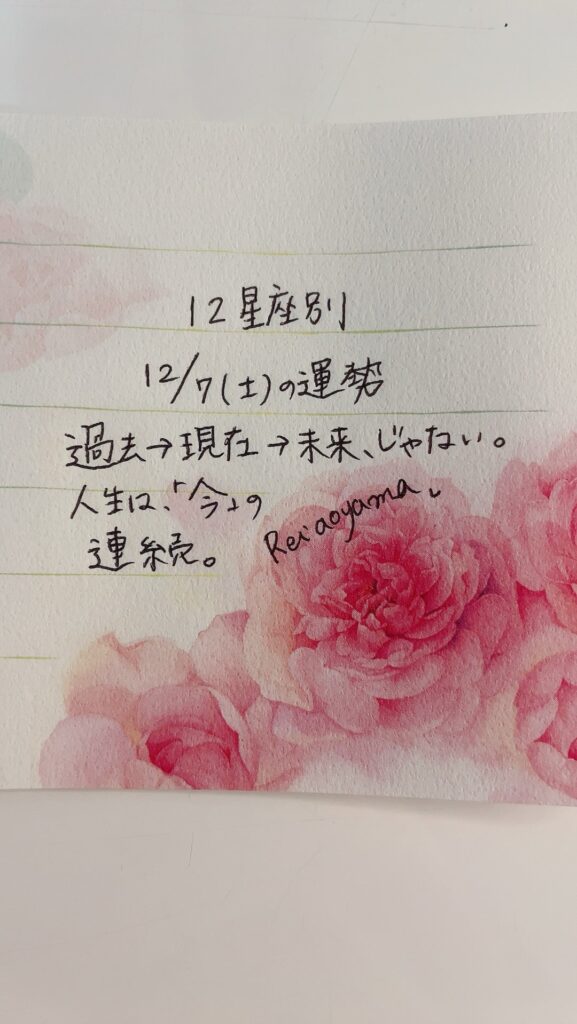 12星座別
12/7(土)の運勢
過去→現在→未来、じゃない。
人生は、「今」の
連続。
Rei aoyama